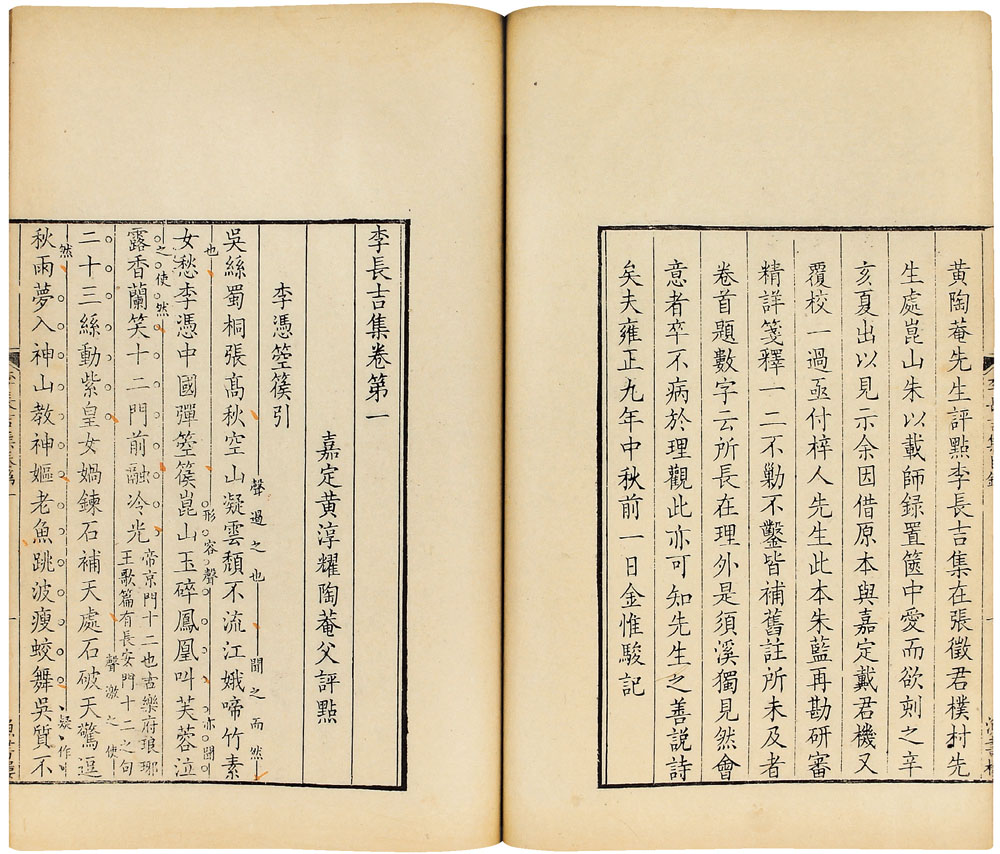 黃陶菴先生評點李長吉集在張徵君樸村先
生處崑山朱以載師録置篋中愛而欲刻之辛
亥夏出以見示余因借原本與嘉定戴君機又
覆校一過亟付梓人先生此本朱藍再勘研審
精詳箋釋一二不勦不鑿皆補舊註所未及者
卷首題數字云所長在理外是須溪獨見然會
意者卒不病於理觀此亦可知先生之善説詩
矣夫雍正九年中秋前一日金惟駿記
李長吉集卷第一
嘉定黃淳耀陶菴父評點
李憑箜篌引
吳絲蜀桐張髙秋空山凝雲頹不流江娥啼竹素
聲過之也
聞之而然
也
女愁李憑中國彈箜篌崑山玉碎鳳凰叫芙蓉泣
形容聲
亦聞
之使然
露香蘭笑十二門前融冷光
帝京門十二也古樂府琅琊
王歌篇有長安門十二之句
聲激之使
二十三絲動紫皇女媧鍊石補天處石破天驚逗
然
秋雨夢入神山教神嫗老魚跳波瘦蛟舞吳質不
疑作